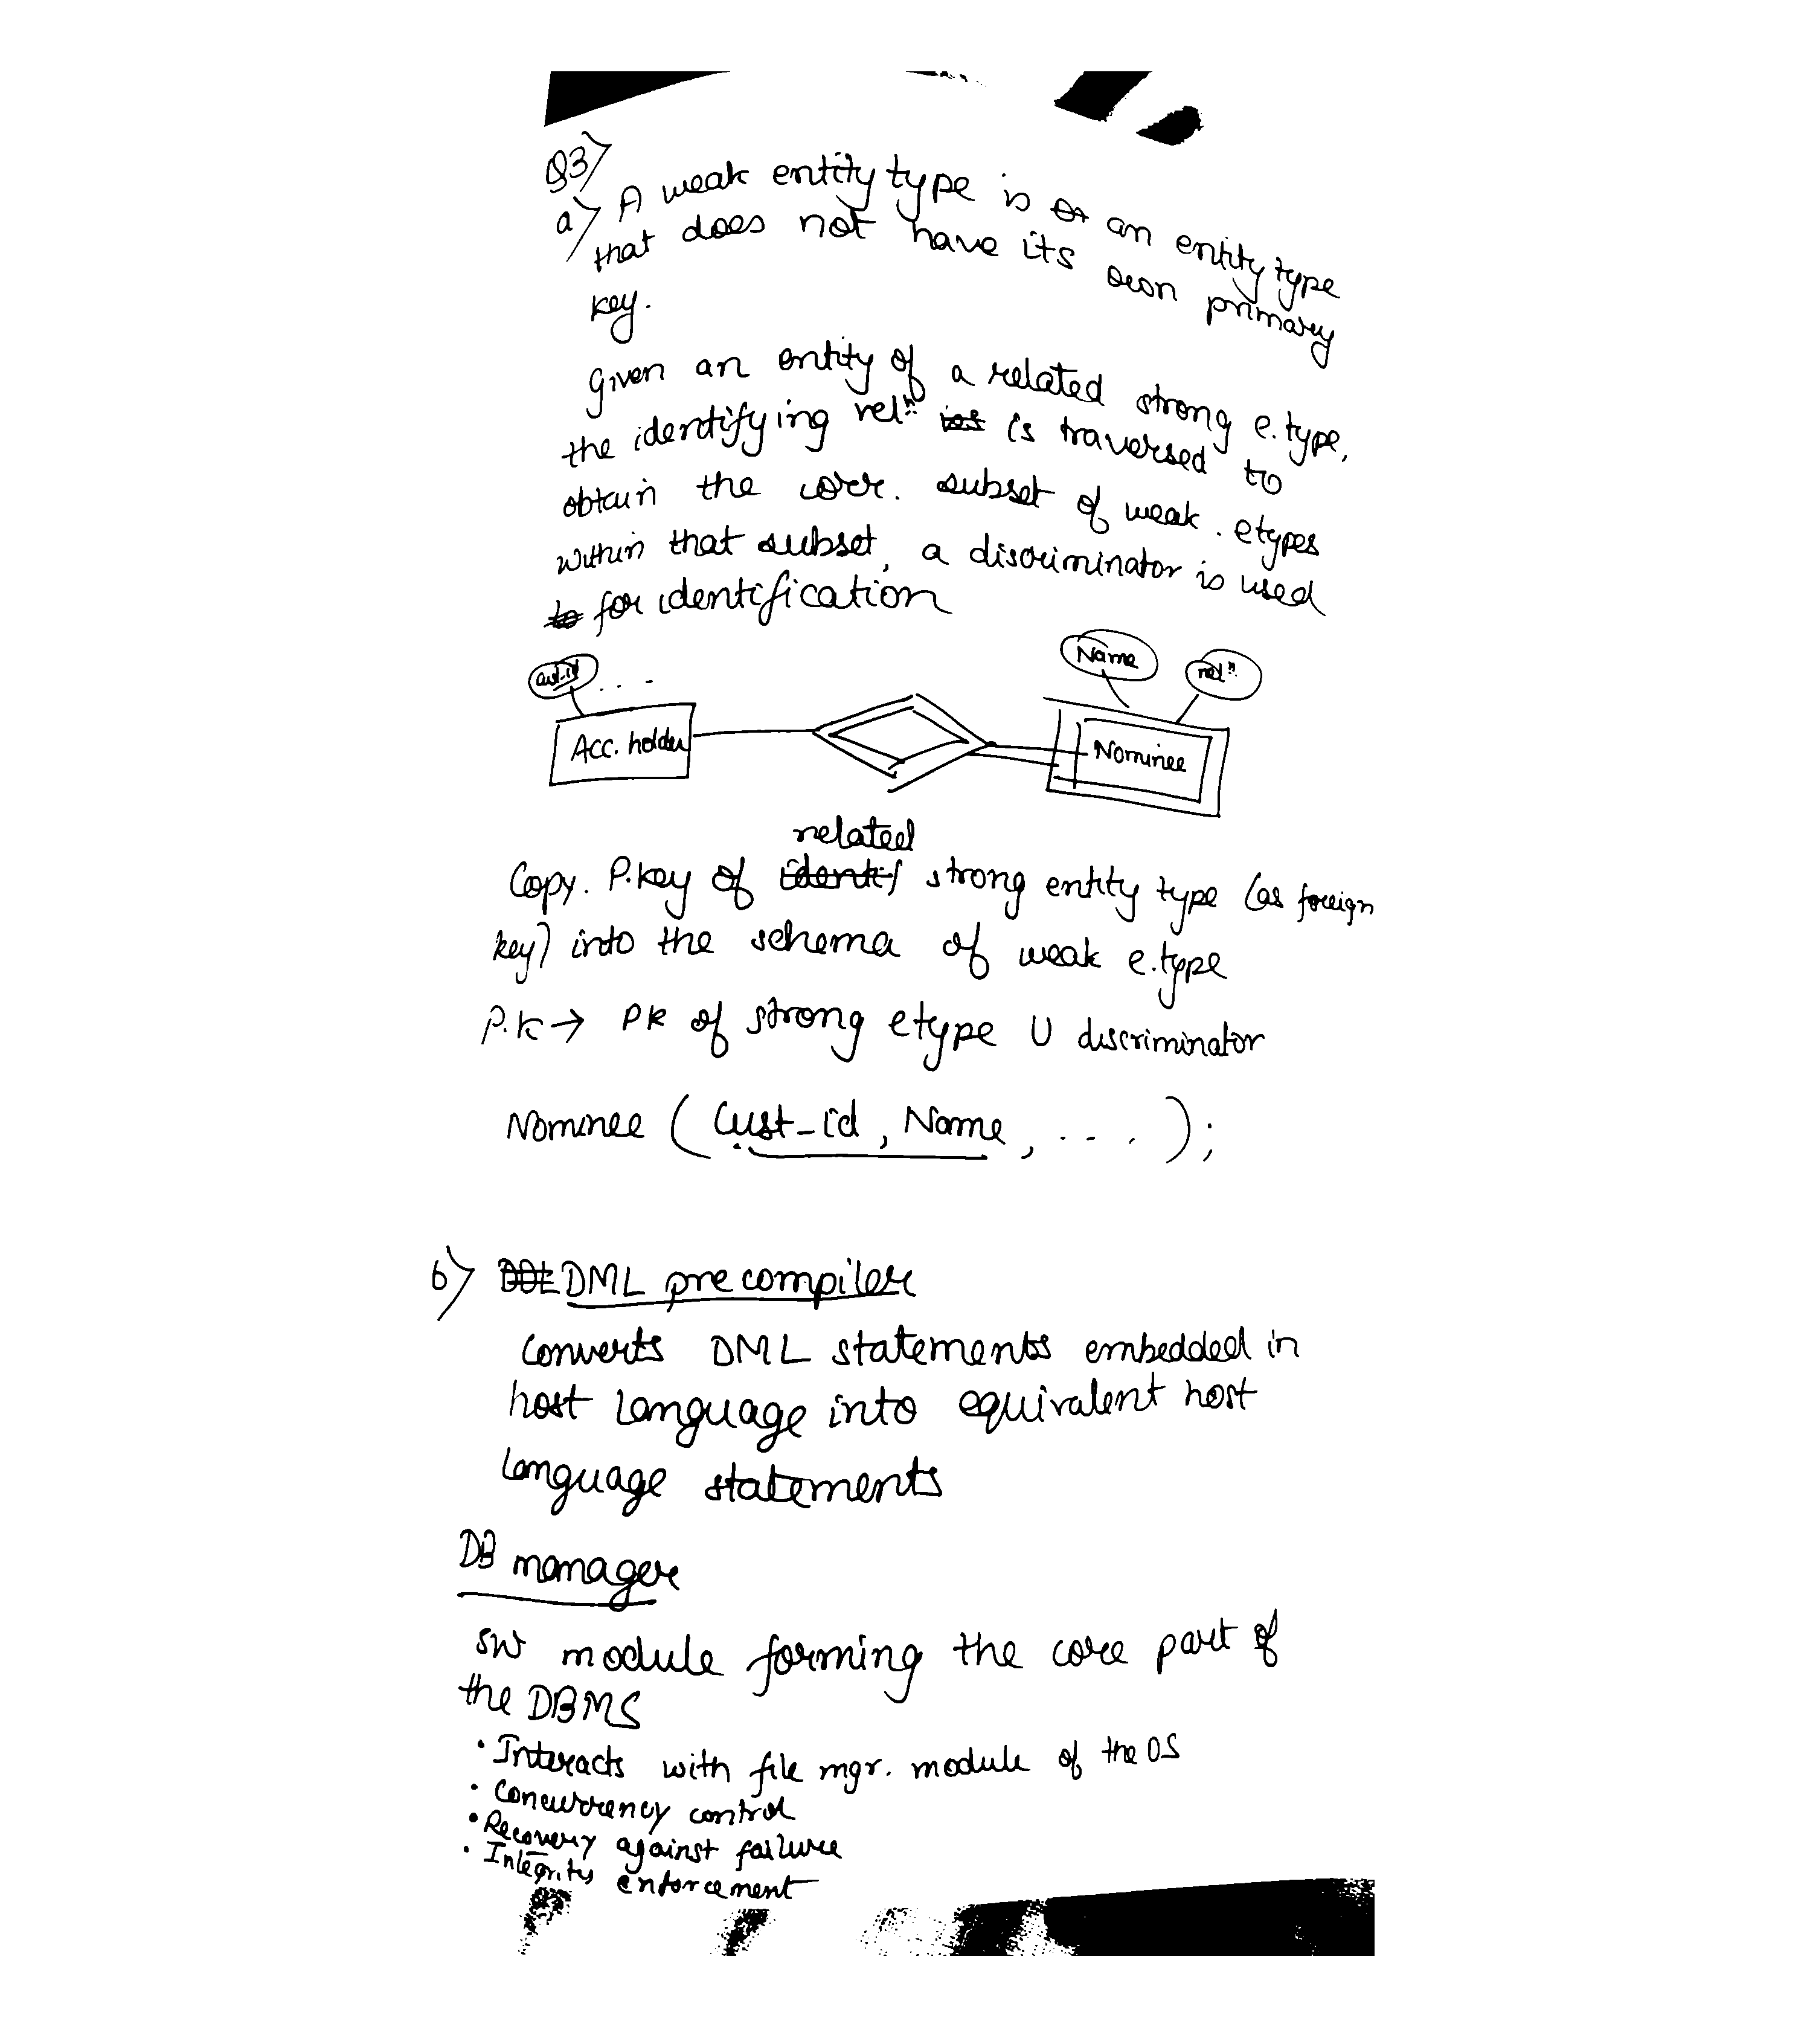 Q3)
a) A weak entity type is an entity type
that does not have its own primary
key.
Given an entity of a related strong e.type,
the identifying relⁿ is traversed to
obtain the corr. subset of weak. etypes
within that subset, a discriminator is used
for identification
cust-id .... Name relⁿ
Acc. holder Nominee
related
Copy. P.key of identif strong entity type (as foreign
key) into the schema of weak e.type
P.K → PK of strong etype U discriminator
Nominee (Cust_id, Name, ....);
b) DDL DML precompiler
Converts DML statements embedded in
host language into equivalent host
language statements
DB manager
SW module forming the core part of
the DBMS
• Interacts with file mgr. module of the OS
• Concurrency control
• Recovery against failure
• Integrity enforcement